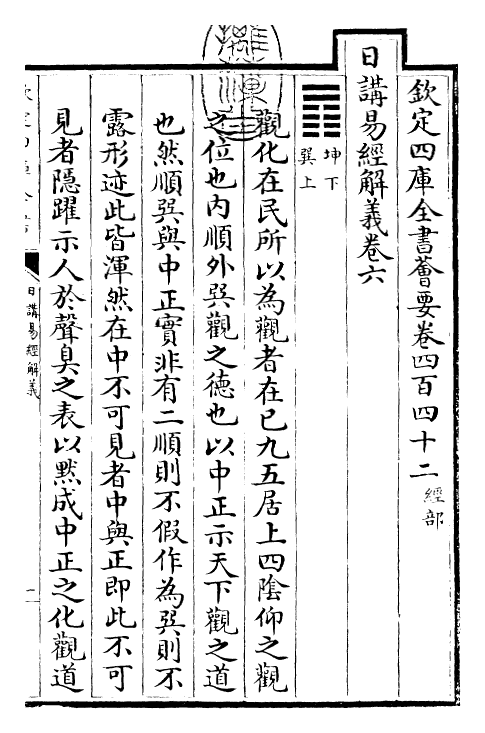 欽定四庫全書薈要卷四百四十二 經部
日講易經解義卷六
坤下
巽上
觀化在民所以為觀者在已九五居上四陰仰之觀
之位也内順外巽觀之德也以中正示天下觀之道
也然順巽與中正實非有二順則不假作為巽則不
露形迹此皆渾然在中不可見者中與正即此不可
見者隱躍示人於聲臭之表以默成中正之化觀道
日講易經解義